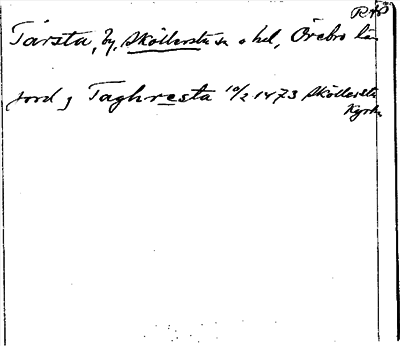 Tarsta, by, Sköllersta sn o hd, Örebro län
jord i Taghresta 10/2 1473 Sköllersta
Kyrka